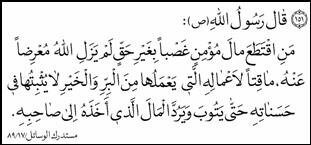 (١٥١) قالَ رَسُولُ اللهِ(ص):
مَنِ اقْتَطَعَ مالَ مُؤْمِنٍ غَصْباً بِغَيْرِ حَقٍّ لَمْ يَزَلِ اللهُ مُعْرِضاً
عَنْهُ، ماقِتاً لِأَعْمالِهِ الَّتي يَعْمَلُها مِنَ الْبِرِّ وَالْخَيْرِ لايُثْبِتُها في
حَسَناتِهِ حَتّى يَتُوبَ وَيَرُدَّ الْمالَ الَّذي أَخَذَهُ إِلى صاحِبِهِ.
مستدرك الوسائل ٨٩/١٧